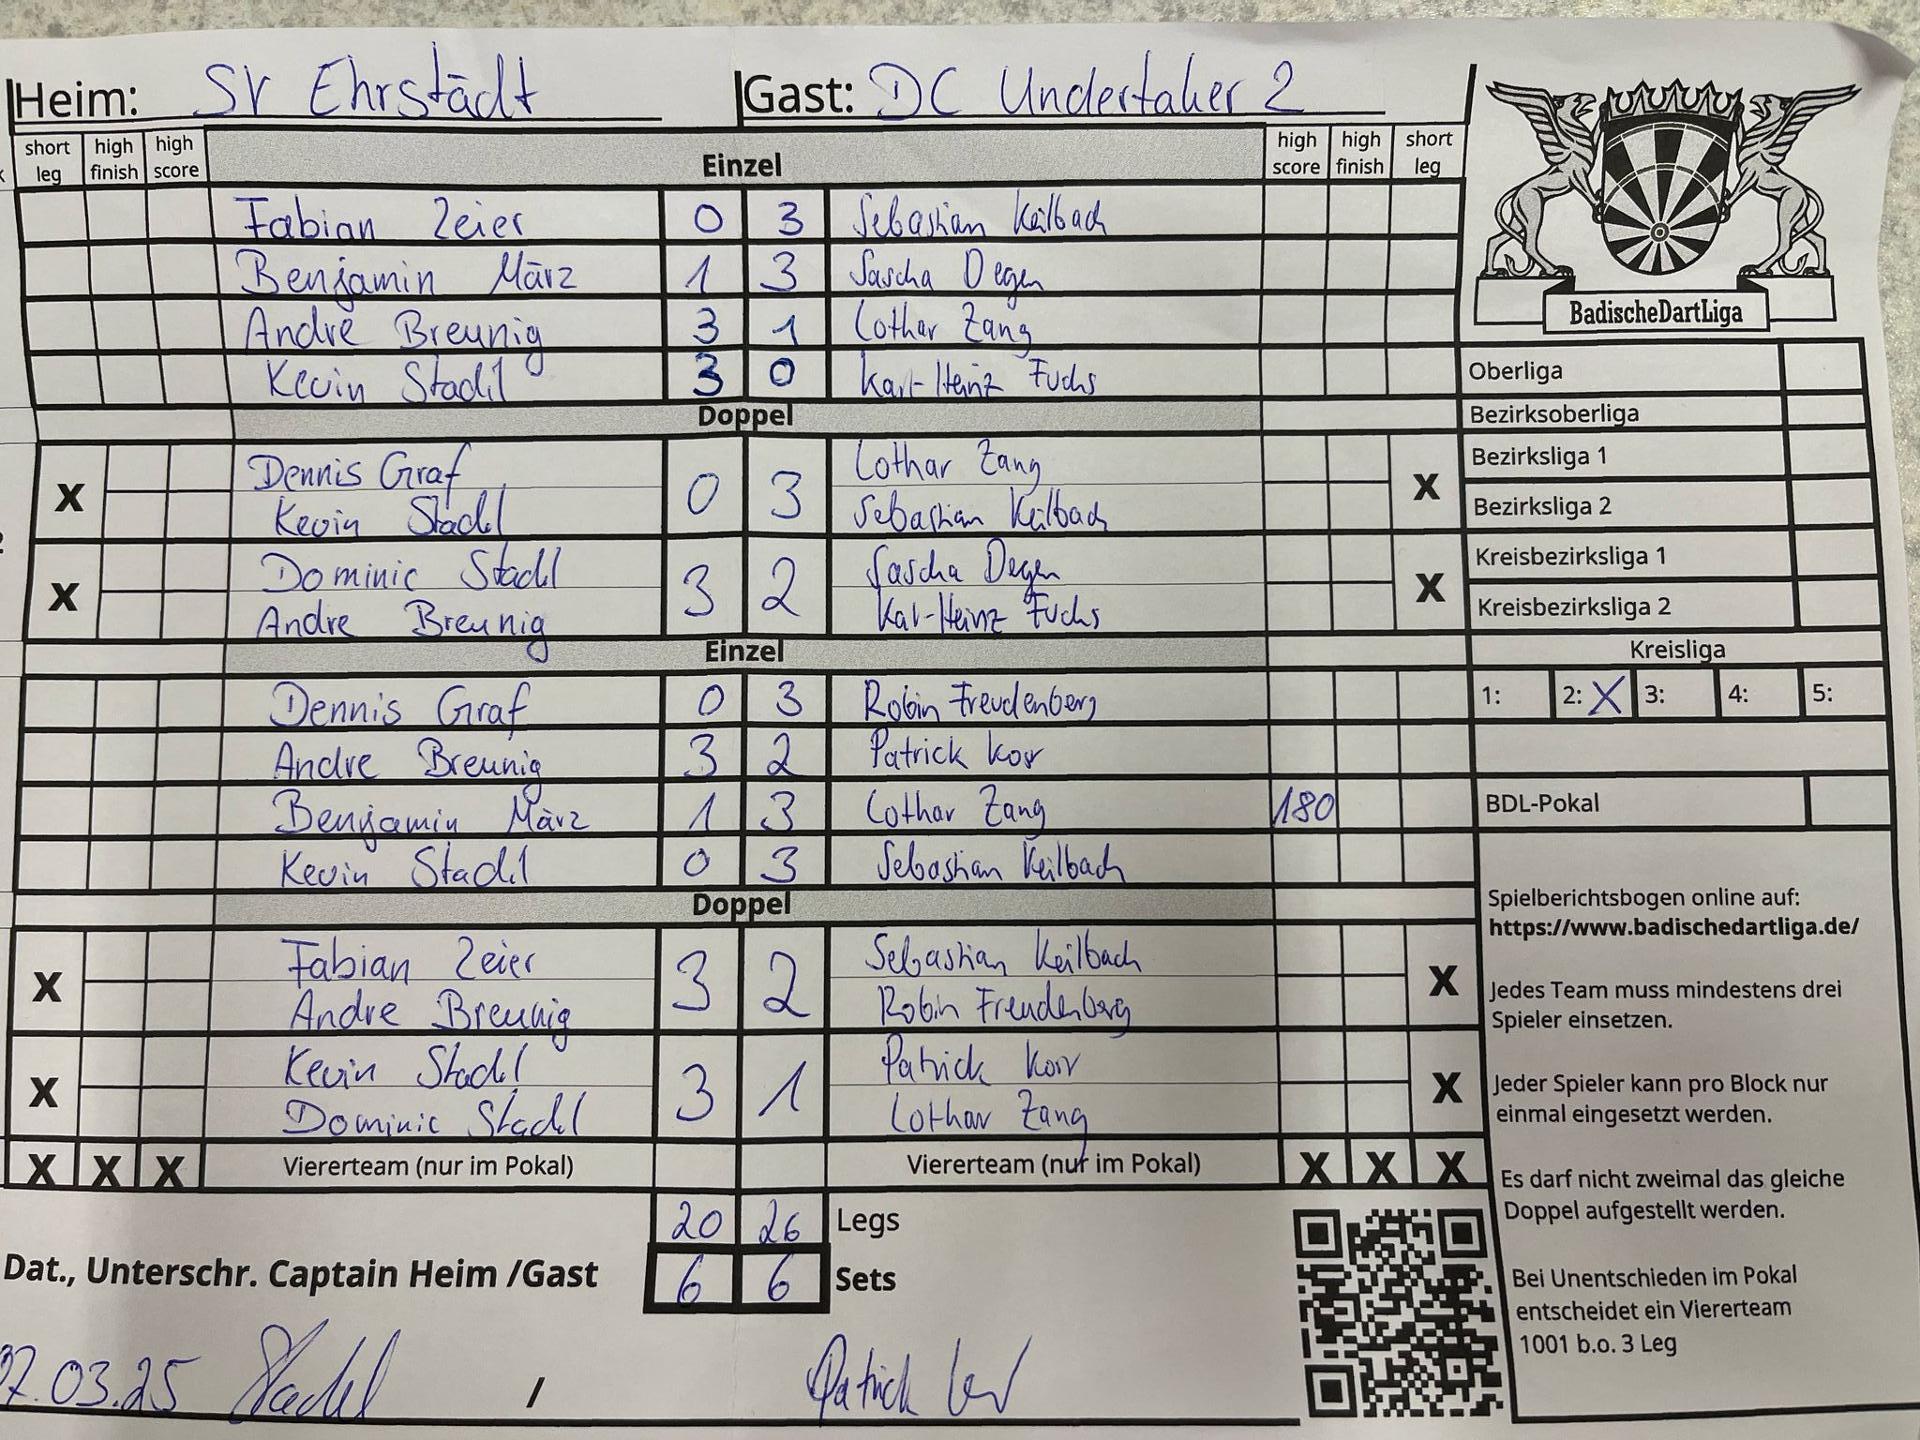 Heim: SV Ehrstädt Gast: DC Undertaker 2
short leg high finish high score Einzel high score high finish short leg
Fabian Zeier 0 3 Sebastian Keilbach
Benjamin März 1 3 Sascha Degen
Andre Breunig 3 1 Lothar Zang
Kevin Stadl 3 0 Karl-Heinz Fuchs
Doppel
X Dennis Graf 0 3 Lothar Zang X
Kevin Stadl Sebastian Keilbach
X Dominic Stadl 3 2 Sascha Degen X
Andre Breunig Karl-Heinz Fuchs
Einzel
Dennis Graf 0 3 Robin Freudenberg
Andre Breunig 3 2 Patrick Korr
Benjamin März 1 3 Lothar Zang 180
Kevin Stadl 0 3 Sebastian Keilbach
Doppel
X Fabian Zeier 3 2 Sebastian Keilbach X
Andre Breunig Robin Freudenberg
X Kevin Stadl 3 1 Patrick Korr X
Dominic Stadl Lothar Zang
X X X Viererteam (nur im Pokal) Viererteam (nur im Pokal) X X X
20 26 Legs
Dat., Unterschr. Captain Heim /Gast 6 6 Sets
7.03.25 Stadl / Patrick
BadischeDartLiga
Oberliga
Bezirksoberliga
Bezirksliga 1
Bezirksliga 2
Kreisbezirksliga 1
Kreisbezirksliga 2
Kreisliga
1: 2: X 3: 4: 5:
BDL-Pokal
Spielberichtsbogen online auf:
https://www.badischedartliga.de/
Jedes Team muss mindestens drei
Spieler einsetzen.
Jeder Spieler kann pro Block nur
einmal eingesetzt werden.
Es darf nicht zweimal das gleiche
Doppel aufgestellt werden.
Bei Unentschieden im Pokal
entscheidet ein Viererteam
1001 b.o. 3 Leg